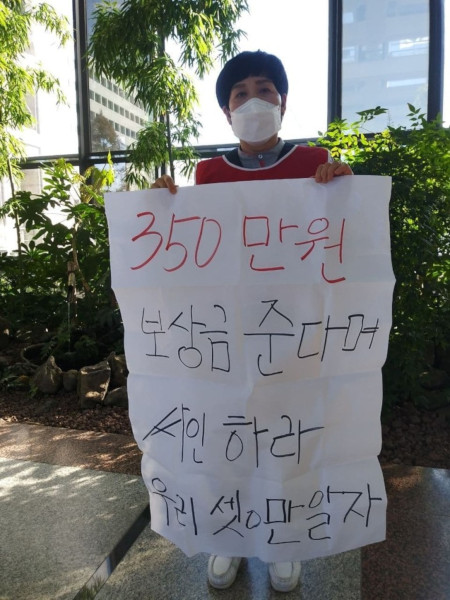 350만원
보상금 준다며
싸인 하라
우리 셋이만 알자